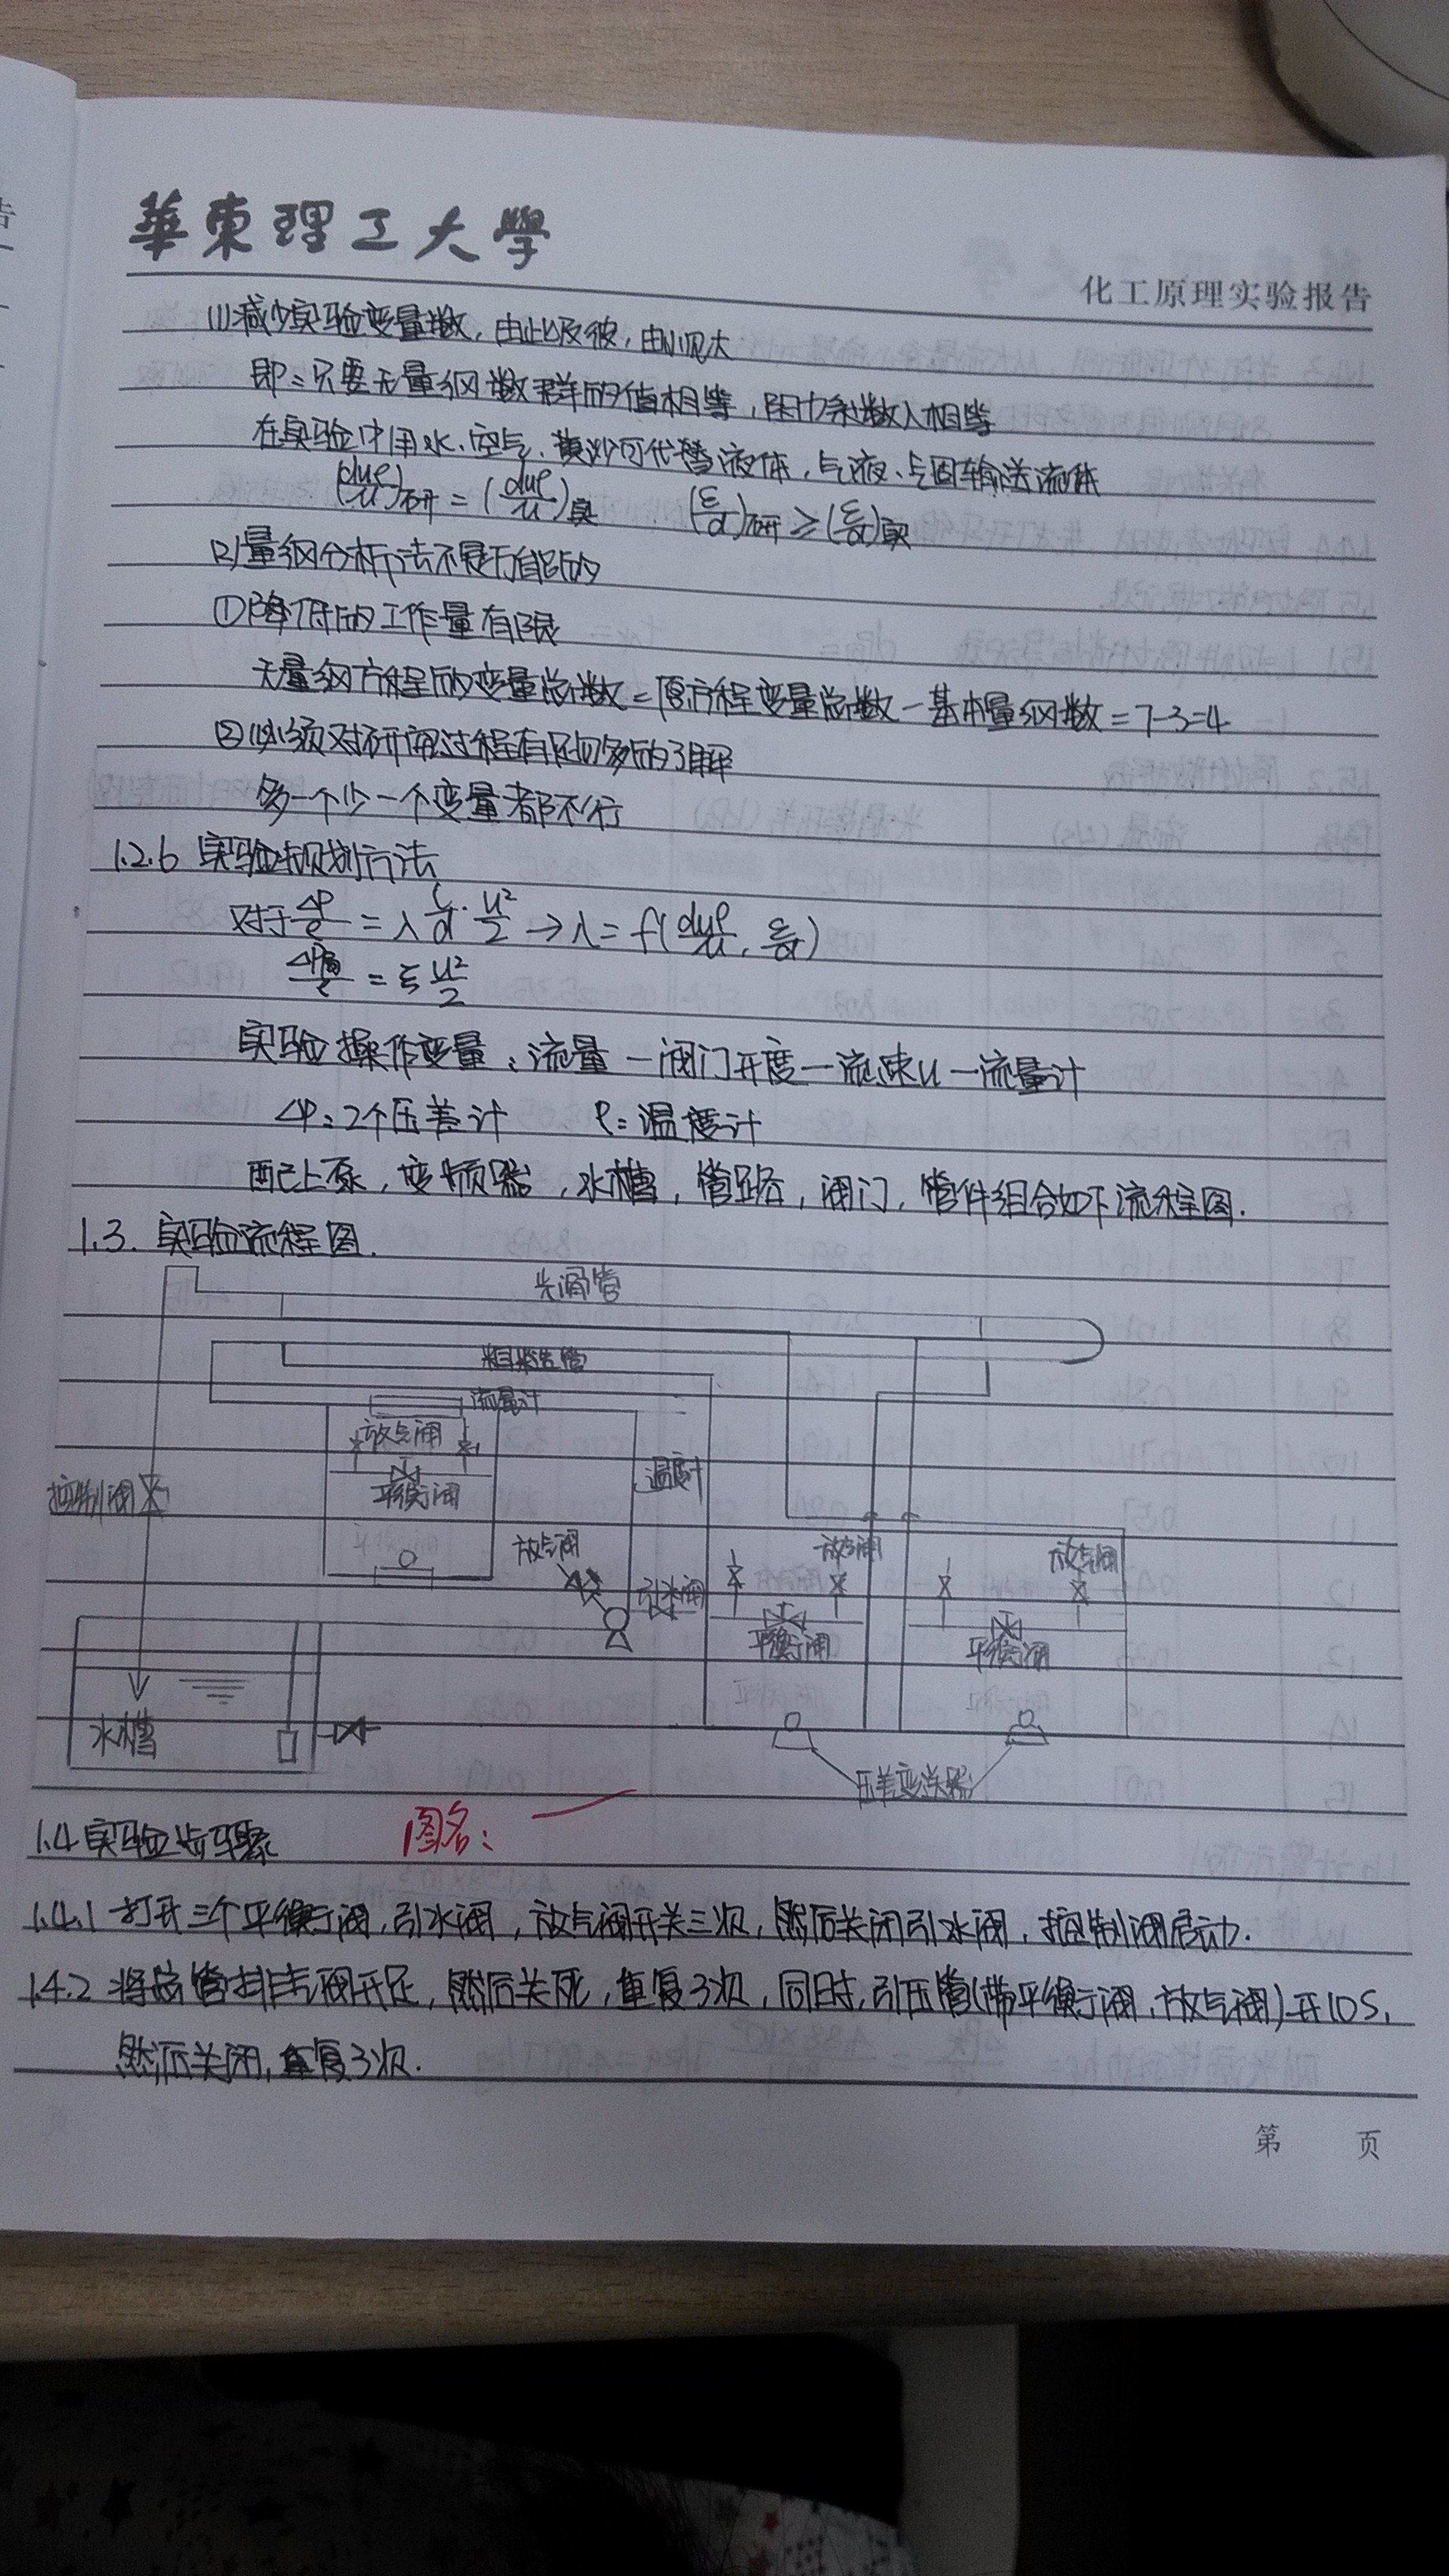 華東理工大學
化工原理实验报告
(1)减少实验变量数,由此及彼,由小见大
即:只要无量纲数群的值相等,阻力系数λ相等
在实验中用水、空气、黄沙可代替液体,气液、气固输送流体
(duρ/μ)研=(duρ/μ)实 (ε/d)研≥(ε/d)实
(2)量纲分析方法不是万能的
①降低的工作量有限
无量纲方程的变量总数=原方程变量总数-基本量纲数=7-3=4
②必须对研究过程有足够多的了解
多一个少一个变量都不行
1.2.6 实验规划方法
对于 ΔP/ρ = λ l/d · u²/2 → λ = f(duρ/μ, ε/d)
ΔP局/ρ = ξ u²/2
实验操作变量:流量—阀门开度—流速u—流量计
ΔP:2个压差计 ρ:温度计
配上泵,变频器,水槽,管路,阀门,管件组合如下流程图.
1.3. 实验流程图.
光滑管
粗糙管
流量计
放气阀
平衡阀
温度计
控制阀
放气阀
引水阀
放气阀
放气阀
平衡阀
平衡阀
水槽
压差变送器
图名:
1.4 实验步骤
1.4.1 打开三个平衡阀,引水阀,放气阀开关三次,然后关闭引水阀,控制阀启动.
1.4.2 将总管排气阀开足,然后关死,重复3次,同时,引压管(带平衡阀,放气阀)开10S,
然后关闭,重复3次.
第 页